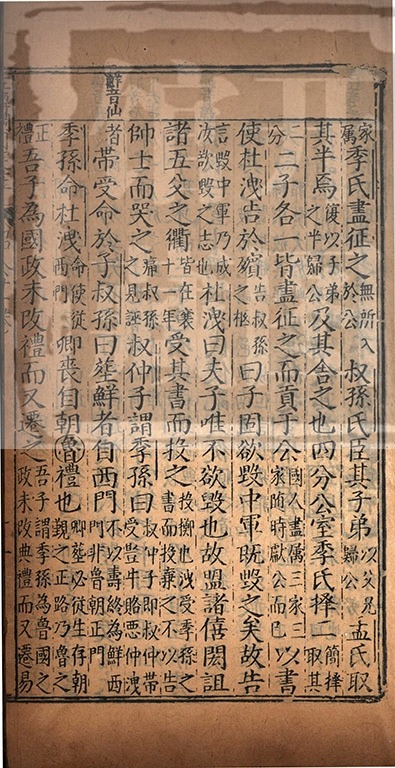 家屬季氏盡征之無所入於公叔孫氏臣其子弟以父兄歸公孟氏取
其半焉復以子弟之半歸公及其舍之也四分公室季氏擇二簡擇取其
二分二子各一皆盡征之而貢于公國人盡屬三家三家隨時獻公而已以書
使杜洩告於殯告叔孫之柩曰子固欲毀中軍旣毀之矣故告
言毀中軍乃成汝欲毀之志也杜洩曰夫子唯不欲毀也故盟諸僖閎詛
諸五父之衢皆在襄十一年受其書而投之投擲也洩受季孫之書而投棄之不以告
帥士而哭之痛叔孫之見誣叔仲子謂季孫曰叔仲子即叔仲帶受豎牛賂惡仲洩
鮮音仙
者帶受命於子叔孫曰葬鮮者自西門不以壽終為鮮西門非魯朝正門
季孫命杜洩命使從西門卿喪自朝魯禮也卿葬必從生存朝覲之正路乃魯之
正禮吾子為國政未改禮而又遷之吾子謂季孫為魯國之政未改典禮而又遷易